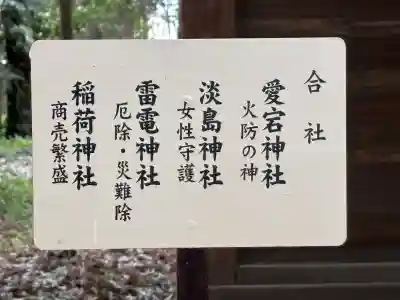 合社
愛宕神社
火防の神
淡島神社
女性守護
雷電神社
厄除・災難除
稲荷神社
商売繁盛